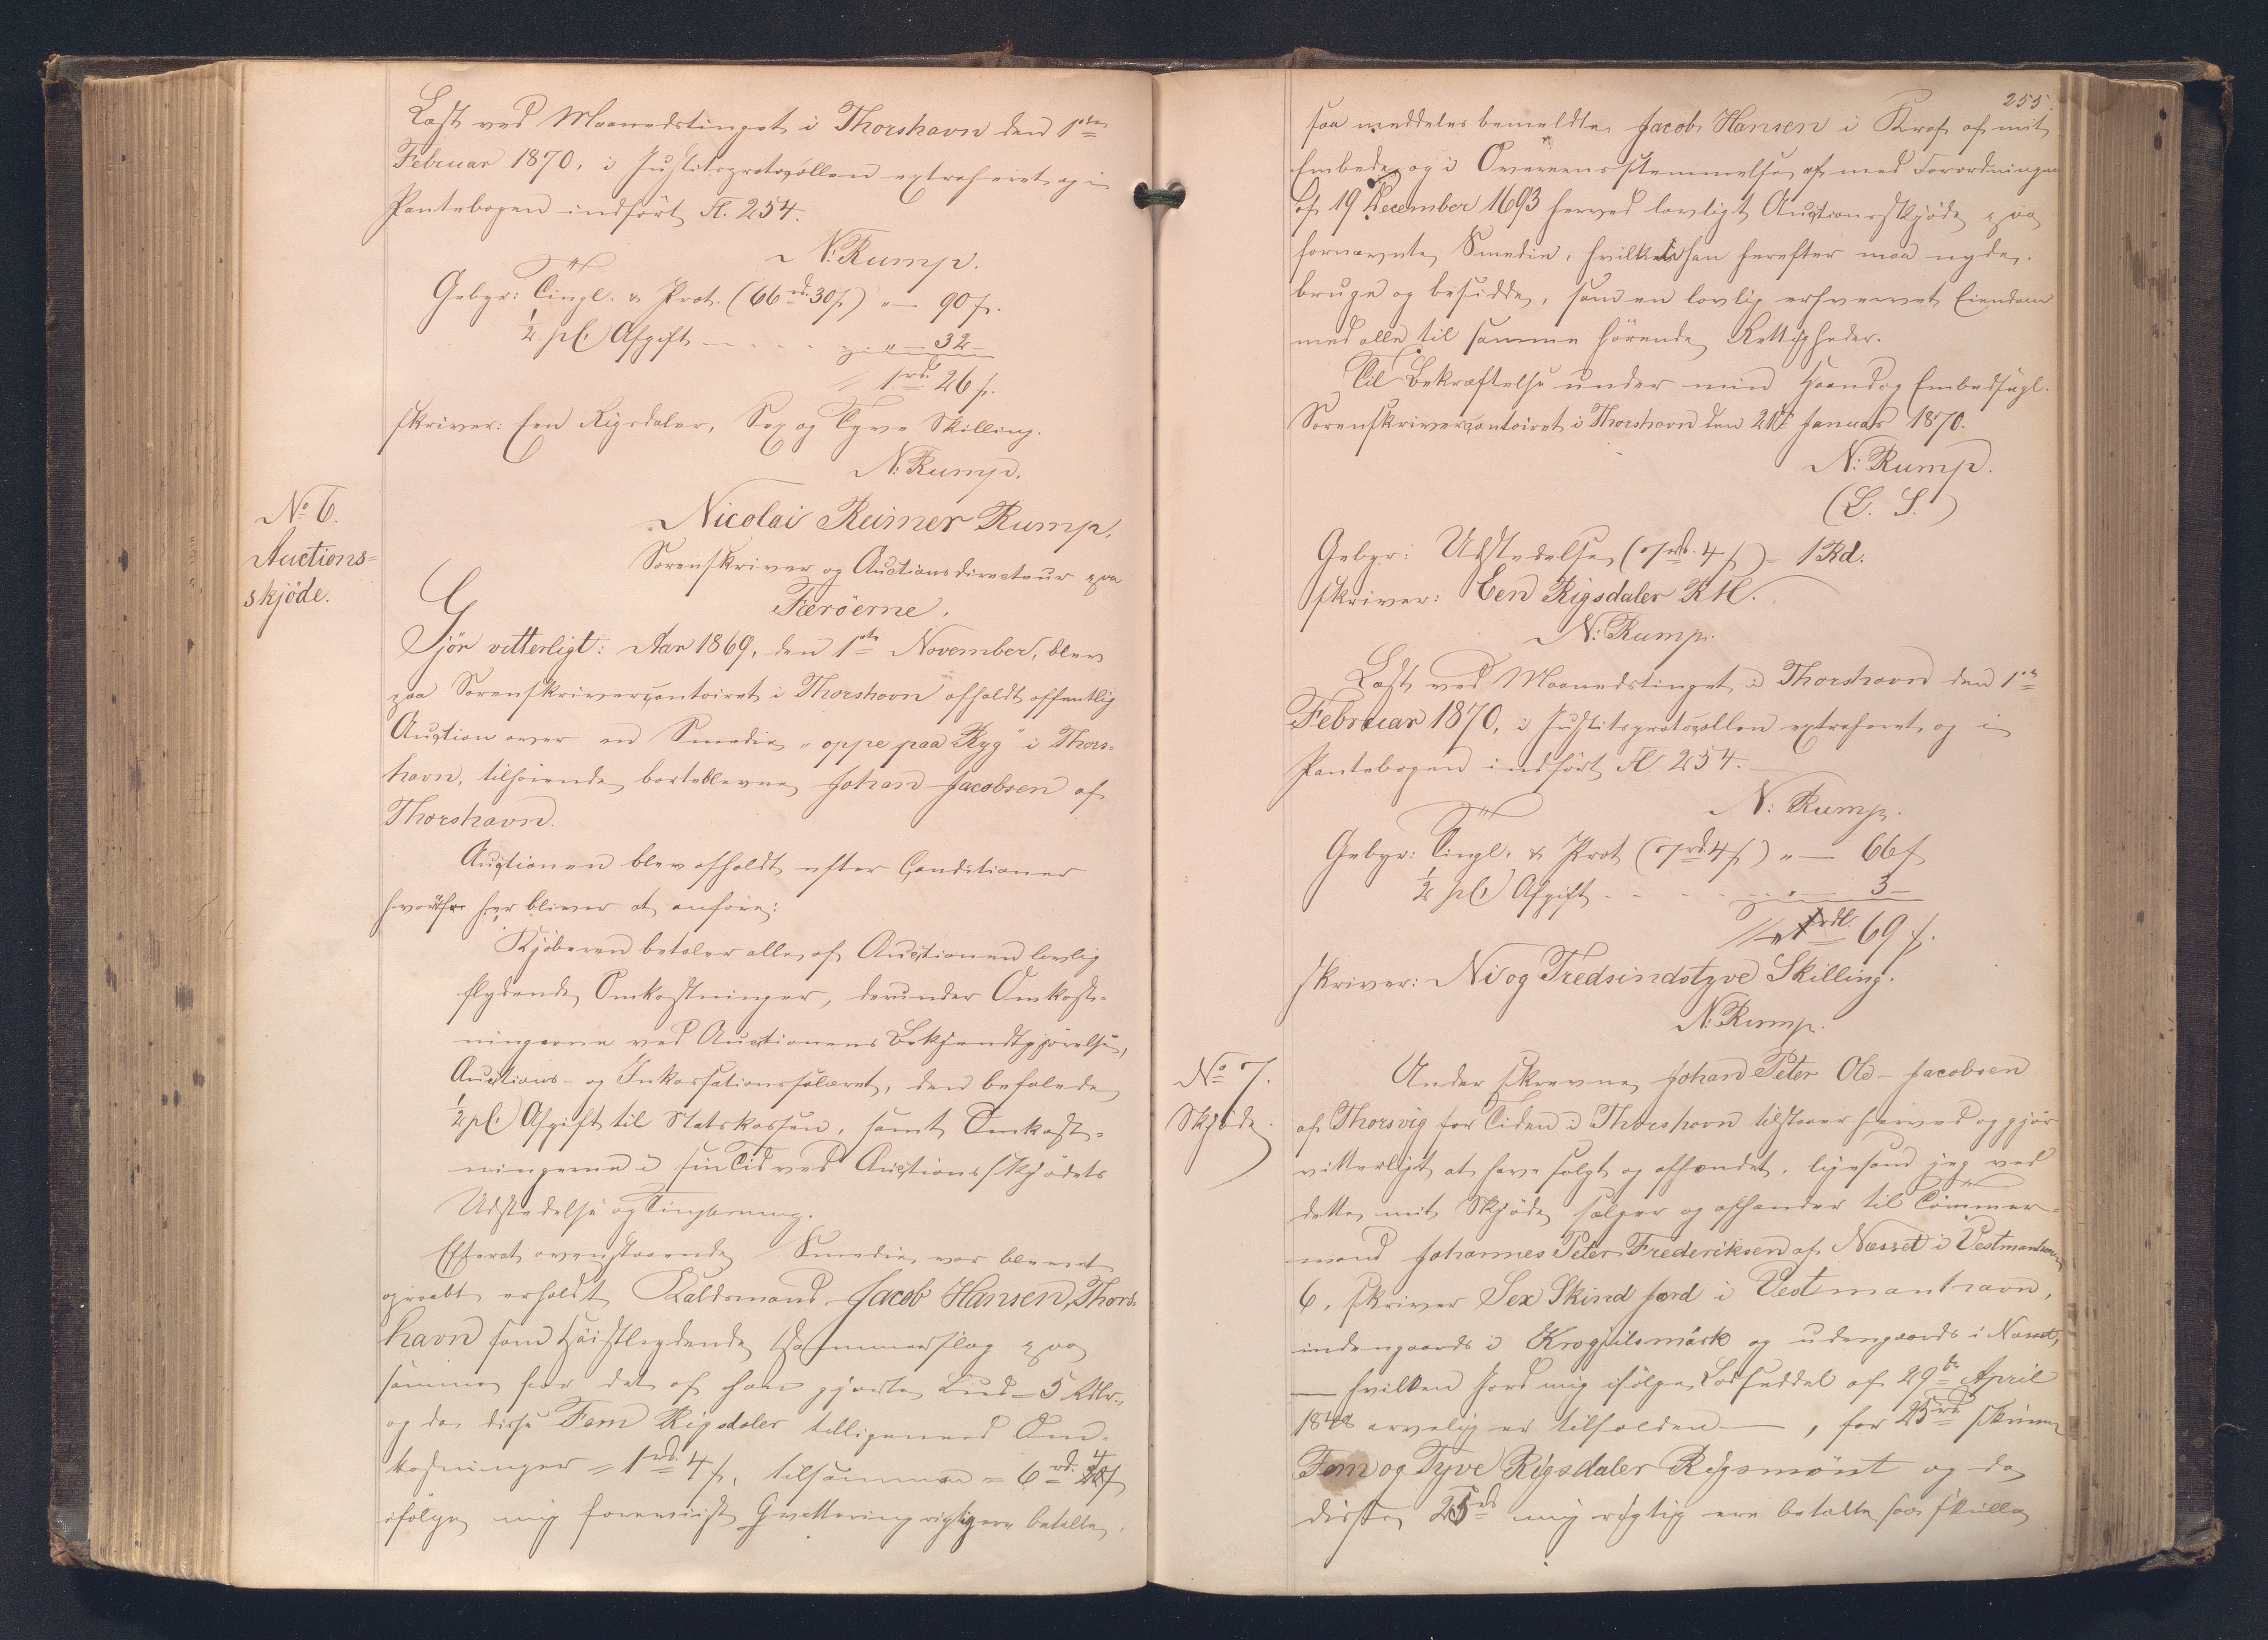 Læst ved Maanedstinget i Thorshavn den 1ste
Februar 1870, i Justitsprotocollen extraheret og i
Pantebogen indført fl. 254.
N: Rump.
Gebyr: Tingl. & Prot. (66 rd. 30 s) " — 90 s.
½ pCt Afgift - - - - " — 32 —
1 rd. 26 s.
skriver: Een Rigsdaler, Sex og Tyve Skilling.
N: Rump.
No 6.
Auctions=
skjöde.
Nicolai Reimer Rump,
Sorenskriver og Auctionsdirecteur paa
Færöerne,
Gjör vitterligt: Aar 1869, den 1ste November, blev
paa Sorenskrivercontoiret i Thorshavn afholdt offentlig
Auction over en Smedie "oppe paa Ryg" i Thors=
havn, tilhörende borteblevne Johan Jacobsen af
Thorshavn.
Auctionen blev afholdt efter Conditioner
hvoraf her bliver at anföre:
Kjöberen betaler alle af Auctionen lovlig
flydende Omkostninger, derunder Omkost=
ningerne ved Auctionens Bekjendtgjörelse,
Auctions- og Inkassationssalairet, den befalede
½ pCt Afgift til Statskassen, samt Omkost=
ningerne i sin Tid ved Auctionsskjödets
Udstedelse og Tinglæsning.
Efterat ovenstaaende Smedie var blevet
opraabt erholdt Kaldsmand Jacob Hansen, Thors=
havn som Höistbydende Hammerslag paa
samme for det af ham gjorte Bud = 5 Rdlr.,
og da disse Fem Rigsdaler tilligemed Om=
kostninger = 1 rd. 4 s, tilsammen = 6 rd. 4 s
ifölge mig foreviist Qvittering rigtig ere betalte,
255.
saa meddeles bemeldte Jacob Hansen i Kraft af mit
Embede og i Overeensstemmelse af med Forordningen
af 19 December 1693 herved lovligt Auctionsskjöde paa
fornævnte Smedie, hvilken han herefter maa nyde,
bruge og besidde, som en lovlig erhvervet Eiendom
med alle til samme hörende Rettigheder.
Til Bekræftelse under min Haand og Embedssegl.
Sorenskrivercontoiret i Thorshavn den 21de Januar 1870.
N: Rump.
(L. S.)
Gebyr: Udstedelse (7 rd. 4 s) = 1 Rd.
skriver: Een Rigsdaler RM.
N: Rump.
Læst ved Maanedstinget i Thorshavn den 1ste
Februar 1870, i Justitsprotocollen extraheret og i
Pantebogen indfört fl. 254.
N: Rump.
Gebyr: Tingl. & Prot (7 rd. 4 s) " — 66 s
½ pCt Afgift - - - - " — 3 —
69 s.
skriver: Ni og Tredsindstyve Skilling.
N: Rump.
No 7.
Skjöde.
Underskrevne Johan Peter Ole Jacobsen
af Thorsvig for Tiden i Thorshavn tilstaaer herved og gjör
vitterligt at have solgt og afhændet, ligesom jeg ved
dette mit Skjöde sælger og afhænder til Tömmer=
mand Johannes Peter Frederiksen af Næsset i Vestmanhavn
6, skriver Sex Skind Jord i Vestmanhavn,
indengaards i Krogjilsmörk og udengaards i Næsset,
— hvilken Jord mig ifölge Lodseddel af 29de April
1848 arvelig er tilfalden —, for 25 rd skriver
Fem og Tyve Rigsdaler Rigsmönt og da
disse 25 rd mig rigtig ere betalte saa skulle